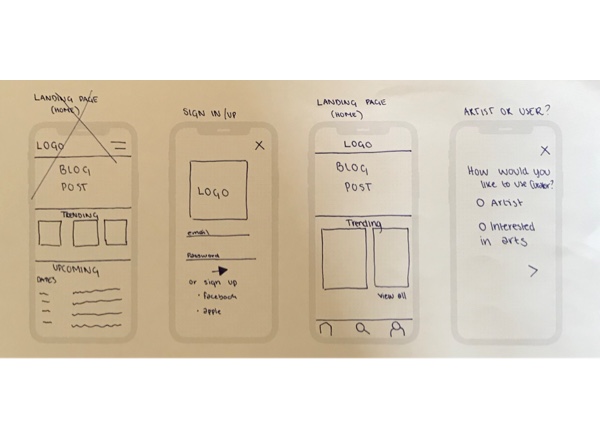 LANDING PAGE
(HOME)
LOGO
BLOG
POST
TRENDING
UPCOMING
DATES
SIGN IN/UP
X
LOGO
email
Password
or sign up
• facebook
• apple
LANDING PAGE
(HOME)
LOGO
BLOG
POST
Trending
view all
ARTIST OR USER?
X
How would you
like to use
O Artist
O Interested
in arts
>